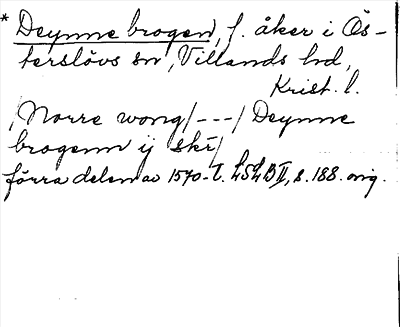 * Deynne brogen, f. åker i Ös-
terslövs sn, Villands hd,
Krist. l.
, Norre wong /---/ Deynne
brogenn ij skr/
förra delen av 1570-t. LSLB II, s. 188. orig.